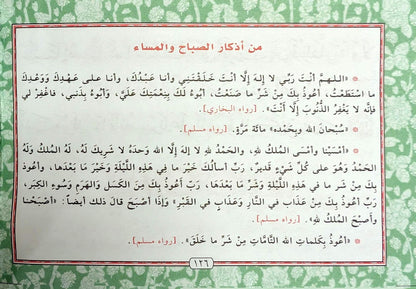 من أذكار الصباح والمساء
* «اللهمَّ أنْتَ رَبِّي لا إلهَ إلَّا أنْتَ خَلَقْتَني وأنا عَبْدُكَ، وأنا على عَهْدِكَ وَوَعْدِكَ
ما اسْتَطَعْتُ، أعُوذُ بِكَ مِنْ شَرِّ ما صَنَعْتُ، أبُوءُ لَكَ بِنِعْمَتِكَ عَلَيَّ، وأبُوءُ بِذَنبي، فاغْفِرْ لي
فإنَّه لا يَغْفِرُ الذُّنُوبَ إلَّا أنْتَ». [رواه البخاري].
* «سُبْحَانَ الله وبِحَمْدِه» مائة مَرَّةٍ. [رواه مسلم].
* «أمْسَيْنا وأمْسَى المُلكُ للهِ، والحَمْدُ للهِ لا إلهَ إلَّا الله وَحدَهُ لا شَرِيكَ لَهُ، لَهُ المُلكُ وَلَهُ
الحَمْدُ وَهُوَ على كُلِّ شَيْءٍ قَدِيرٌ، رَبِّ أسألُكَ خَيْرَ ما في هَذِهِ اللَّيْلَةِ وَخَيْرَ ما بَعْدَها، وأعُوذُ
بِكَ مِنْ شَر ما في هَذِهِ اللَّيْلَةِ وَشَرِّ ما بَعْدَها، رَبِّ أعُوذُ بِكَ مِنَ الكَسَلِ وَالهَرَمِ وَسُوءِ الكِبَرِ،
رَبِّ أعُوذُ بِكَ مِنْ عَذَابٍ في النَّارِ وَعَذَابٍ في القَبْرِ» وإذَا أصْبَحَ قالَ ذلك أيضاً: «أصْبَحْنا
وأصبَحَ المُلكُ للهِ». [رواه مسلم].
* «أعُوذُ بِكَلِماتِ الله التَّامَّاتِ مِنْ شَرِّ ما خَلَقَ». [رواه مسلم].
١٢٦